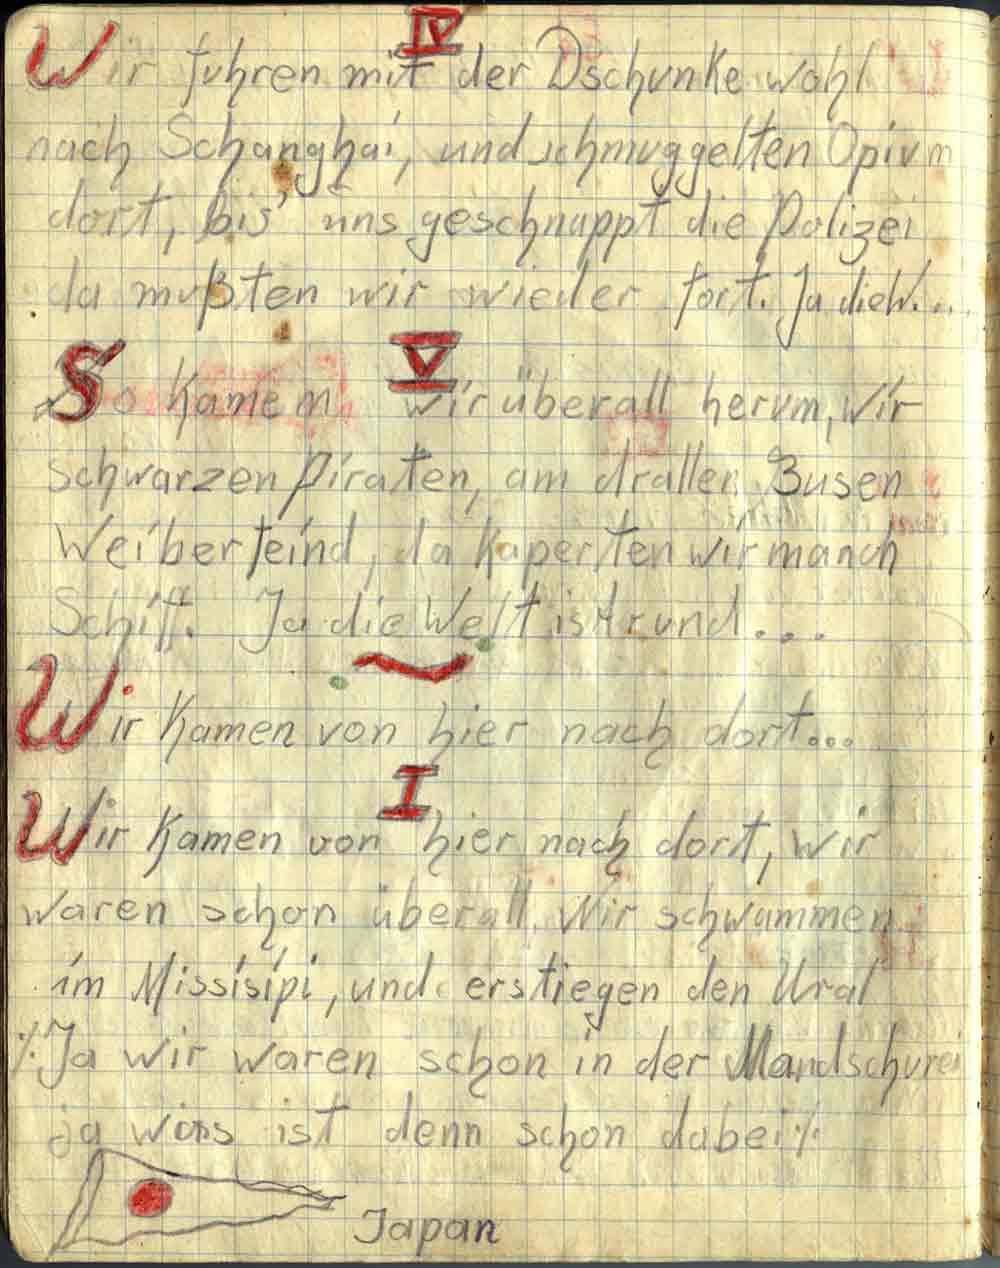 IV
Wir fuhren mit der Dschunke wohl
nach Schanghai, und schmuggelten Opium
dort, bis uns geschnappt die Polizei
da mußten wir wieder fort. Ja die W....
V
So kamen wir überall herum, wir
schwarzen Piraten, am draller Busen
Weiberfeind, da kaperten wir manch
Schiff. Ja die Welt ist rund....
Wir kamen von hier nach dort...
I
Wir kamen von hier nach dort, wir
waren schon überall. Wir schwammen
im Missisipi, und erstiegen den Ural
·/. Ja wir waren schon in der Mandschurei
ja was ist denn schon dabei ·/.
Japan